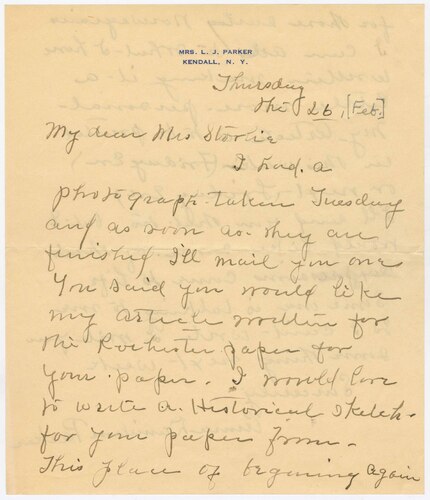 MRS. L. J. PARKER
KENDALL, N. Y.
Thursday
the 26, [Feb.]
My dear Mrs Storlie
I had a
photograph taken Tuesday
and as soon as they are
finished I'll mail you one
You said you would like
my article written for
the Rochester paper for
your paper. I would love
to write a Historical Sketch
for your paper from
This place of begining again